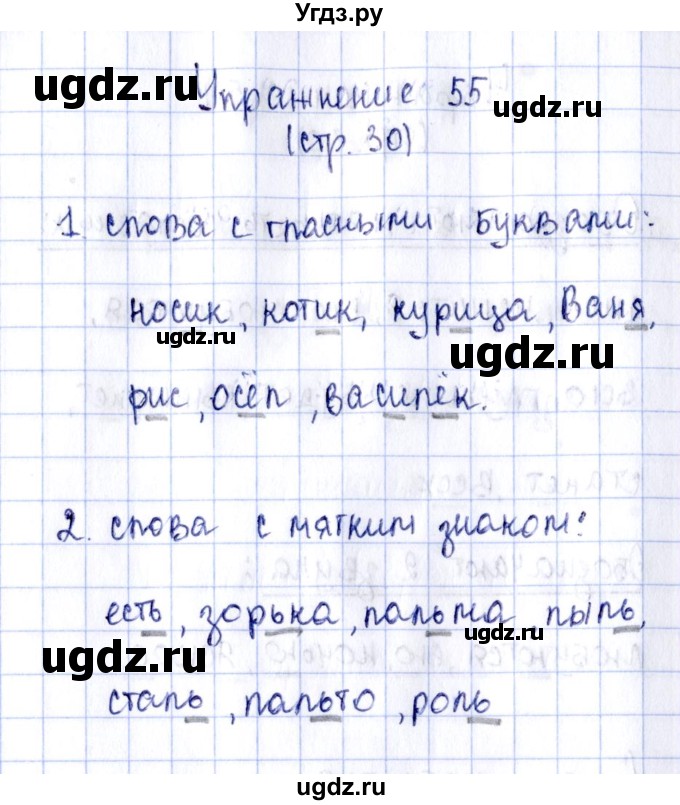 Угдз.ру
ugdz.ru
Упражнение 55
ugdz.ru
(стр. 30)
1. слова с гласными буквами:
носик, котик, курица, Ваня,
ugdz.ru
ugdz.ru
рис, осёл, василёк.
2. слова с мягким знаком:
есть, зорька, пальма, пыль,
ugdz.ru
ugdz.ru
сталь, пальто, роль
ugdz.ru